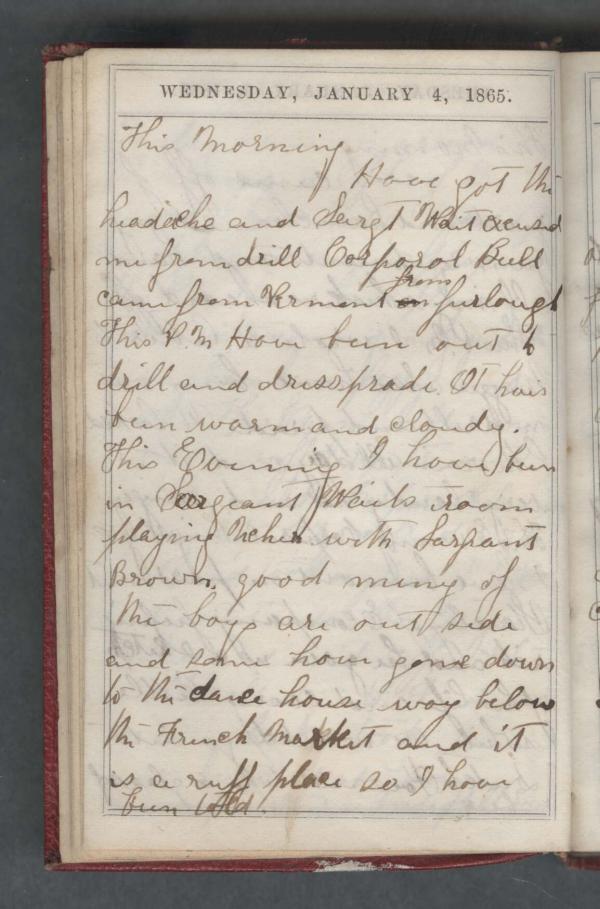 WEDNESDAY, JANUARY 4, 1865.
This Morning
Have got the
headache and Sargt Wait excused
me from drill Corporal Bull
from
came from Vermont on furlough
This P.M Have been out to
drill and dressprade. It hais
been warm and cloudy.
This Evening I have been
in Sargeant Waits room
playing with Sargant
Brown. good meny of
the boys are out side
and some have gone down
to the dance house way below
the French Market and it
is a ruff place so I have
been told.